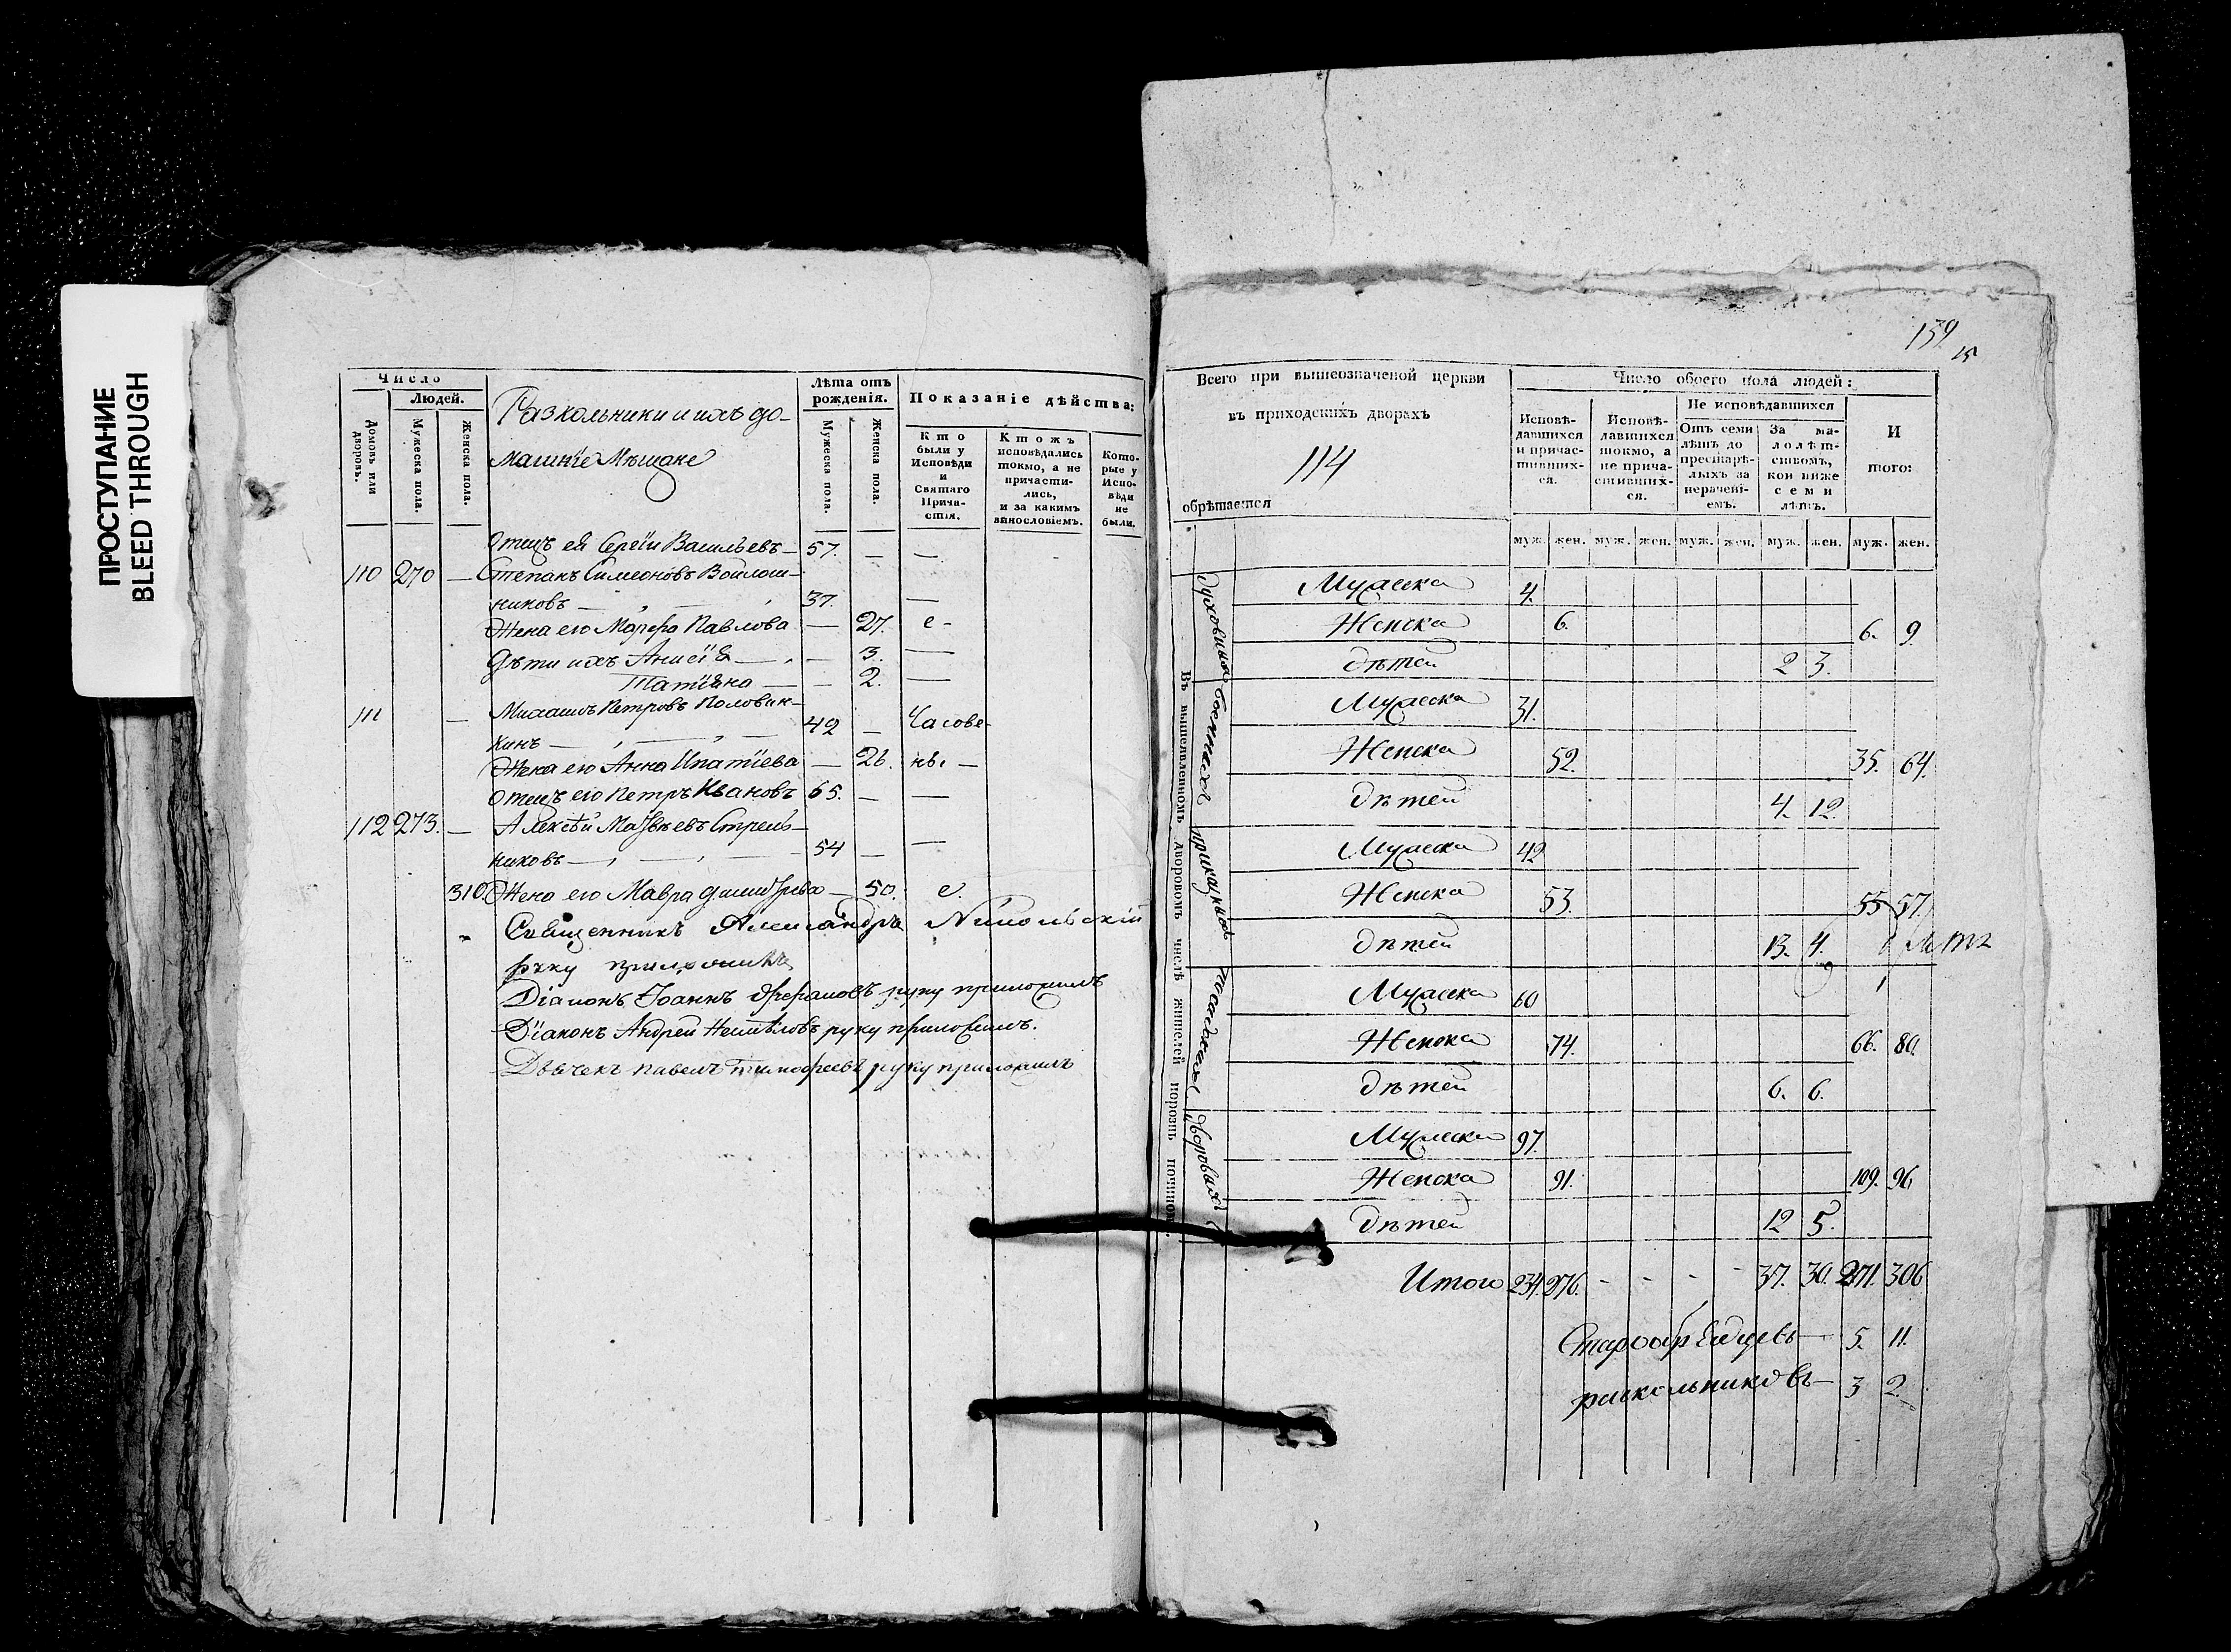 ПРОСТУПАНИЕ
BLEED THROUGH
Число
Людей.
Домовъ или дворовъ.
Мужеска пола.
Женска пола.
Разкольники и ихъ до-
машніе Мѣщане
Лѣта отъ рожденія.
Мужеска пола.
Женска пола.
Показаніе дѣйства:
Кто были у Исповѣди и Святаго Причастія.
Ктожъ исповѣдались токмо, а не причастились, и за какимъ винословіемъ.
Которые у Исповѣди не были.
Отецъ ей Сергіи Васильевъ — 57. — —
110 270 — Степанъ Симеоновъ Войлош-
никовъ — 37. —
Жена его Марфа Павлова — 27. е-
Дѣти ихъ Анисіа — — 3. —
Татіана — — 2. —
111 — Петровъ Половин-
кинъ — 42 — Часове-
Жена его Анна Ипатіева — 26. нѣ. —
Отецъ его Петръ Ивановъ 65. — —
112 273. — Алексѣй Матвѣевъ Стрель-
никовъ — 54 — —
310. Жена его Мавра — 50. е.
Священникъ Александръ Никольскій
руку приложилъ
Діаконъ Іоаннъ руку приложилъ
Діаконъ Андрей руку приложилъ.
Дьячекъ Павелъ Тимофеевъ руку приложилъ
159
15
Всего при вышеозначеной церкви
въ приходскихъ дворахъ
114
обрѣтается
Число обоего пола людей:
Исповѣдавшихся и причастившихся.
Исповѣдавшихся токмо, а не причастившихся.
Не исповѣдавшихся
Отъ семи лѣтъ до престарѣлыхъ за нерачені-емъ.
За малолѣтствомъ, кои ниже семи лѣтъ.
И того:
муж. жен. муж. жен. муж. жен. муж. жен. муж. жен.
Въ вышеявленномъ дворовомъ числѣ жителей порознь по чиномъ.
Духовныхъ
Мужеска 4.
Женска 6. 6. 9.
Дѣтей 2 3.
Военныхъ
Мужеска 31.
Женска 52. 35. 64.
Дѣтей 4. 12.
Приказныхъ
Мужеска 42
Женска 53. 55 57.
Дѣтей 13. 4.
Посадскихъ
Мужеска 60
Женска 74. 66. 80.
Дѣтей 6. 6.
Дворовыхъ
Мужеска 97.
Женска 91. 109. 96
Дѣтей 12 5.
Итого 234. 276. - - - - 37. 30. 271. 306
Старообрядцевъ — 5. 11.
раскольниковъ — 3 2.